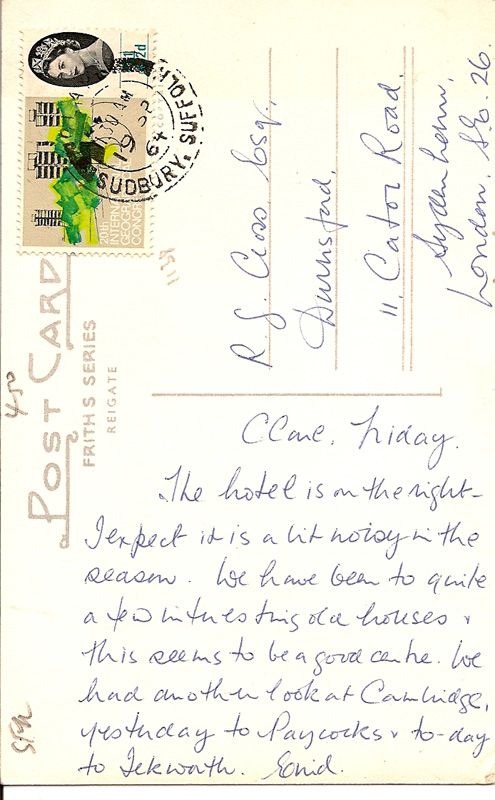 2½d
20th
INTERN
GEOGRA
CONG
SUDBURY, SUFFOLK
AM
19
64
POST CARD
FRITH'S SERIES
REIGATE
R. G. Cross, Esq.,
Durnsford,
11, Cator Road,
Sydenham,
London, S.E. 26
Clare, Friday.
The hotel is on the right-
I expect it is a bit noisy in the
season. We have been to quite
a few interesting old houses &
this seems to be a good centre. We
had another look at Cambridge,
yesterday to Paycocks & to-day
to Ickworth. Enid.
450